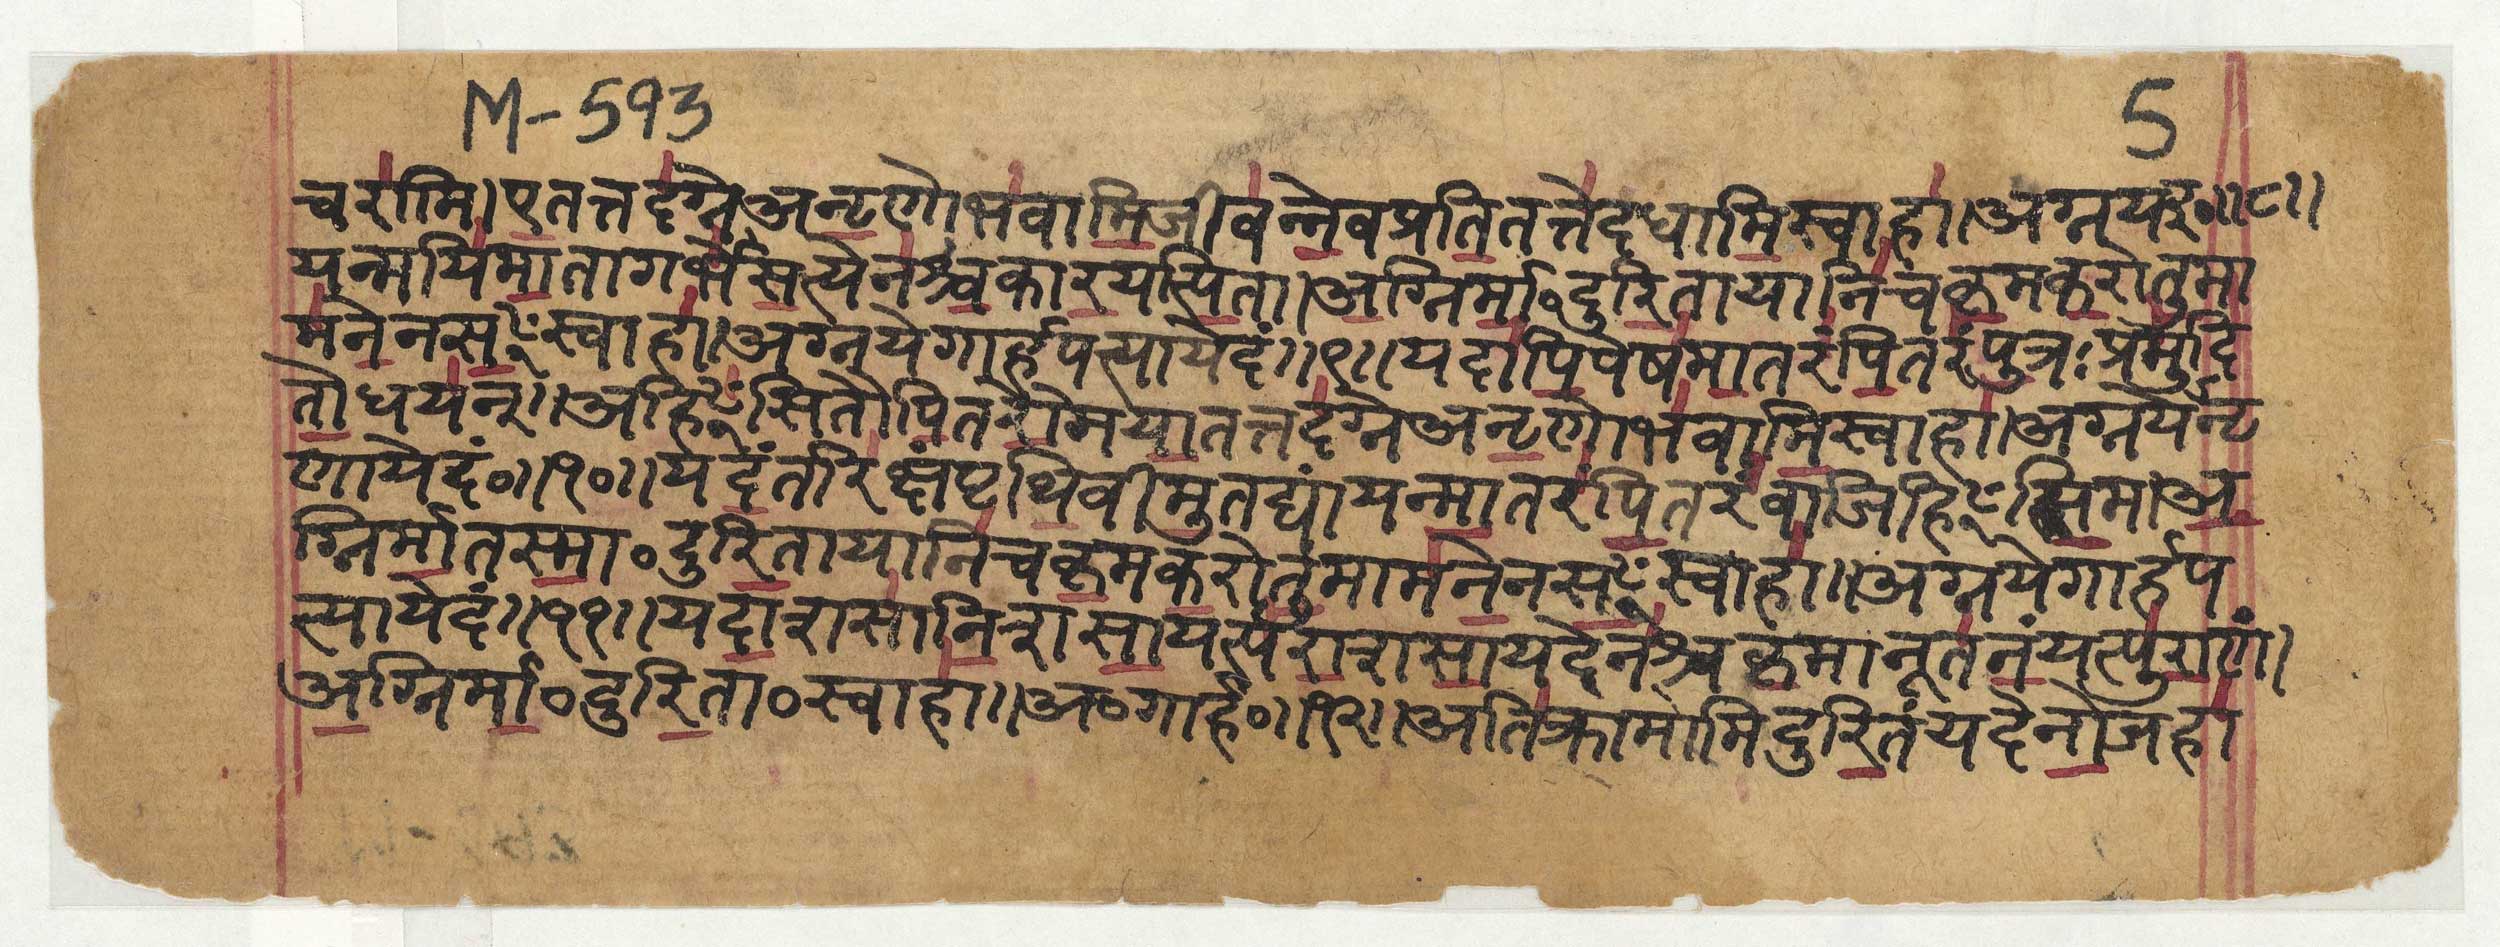 M-593
5
चरामि।एतत्तदग्नेअनृणोभवामिजीवन्नेवप्रतितत्तेदधामिस्वाहा।अग्नयइ०॥८॥
यन्मयिमातागर्भेसत्येनश्चकारयत्पिता।अग्निर्मा०दुरितायानिचकृमकरोतुमा
मनेनसꣳस्वाहा।अग्नयेगार्हपत्यायेदं॥९॥यदापिपेषमातरंपितरंपुत्रःप्रमुदि
तोधयन्॥अहिꣳसितौपितरौमयातत्तदग्नेअनृणोभवामिस्वाहा।अग्नयेनृ
णायेदं०॥१०॥यदंतरिक्षंपृथिवीमुतद्यांयन्मातरंपितरंवाजिहिꣳसिम।अ
ग्निर्मातस्मा०दुरितायानिचकृमकरोतुमामनेनसꣳस्वाहा॥अग्नयेगार्हप
त्यायेदं॥११॥यदाशसानिशसायत्पराशसायदेनश्चकृमानूतनंयत्पुराणं।
अग्निर्मा०दुरिता०स्वाहा॥अ०गार्ह०॥१२॥अतिक्रामामिदुरितंयदेनोजहा